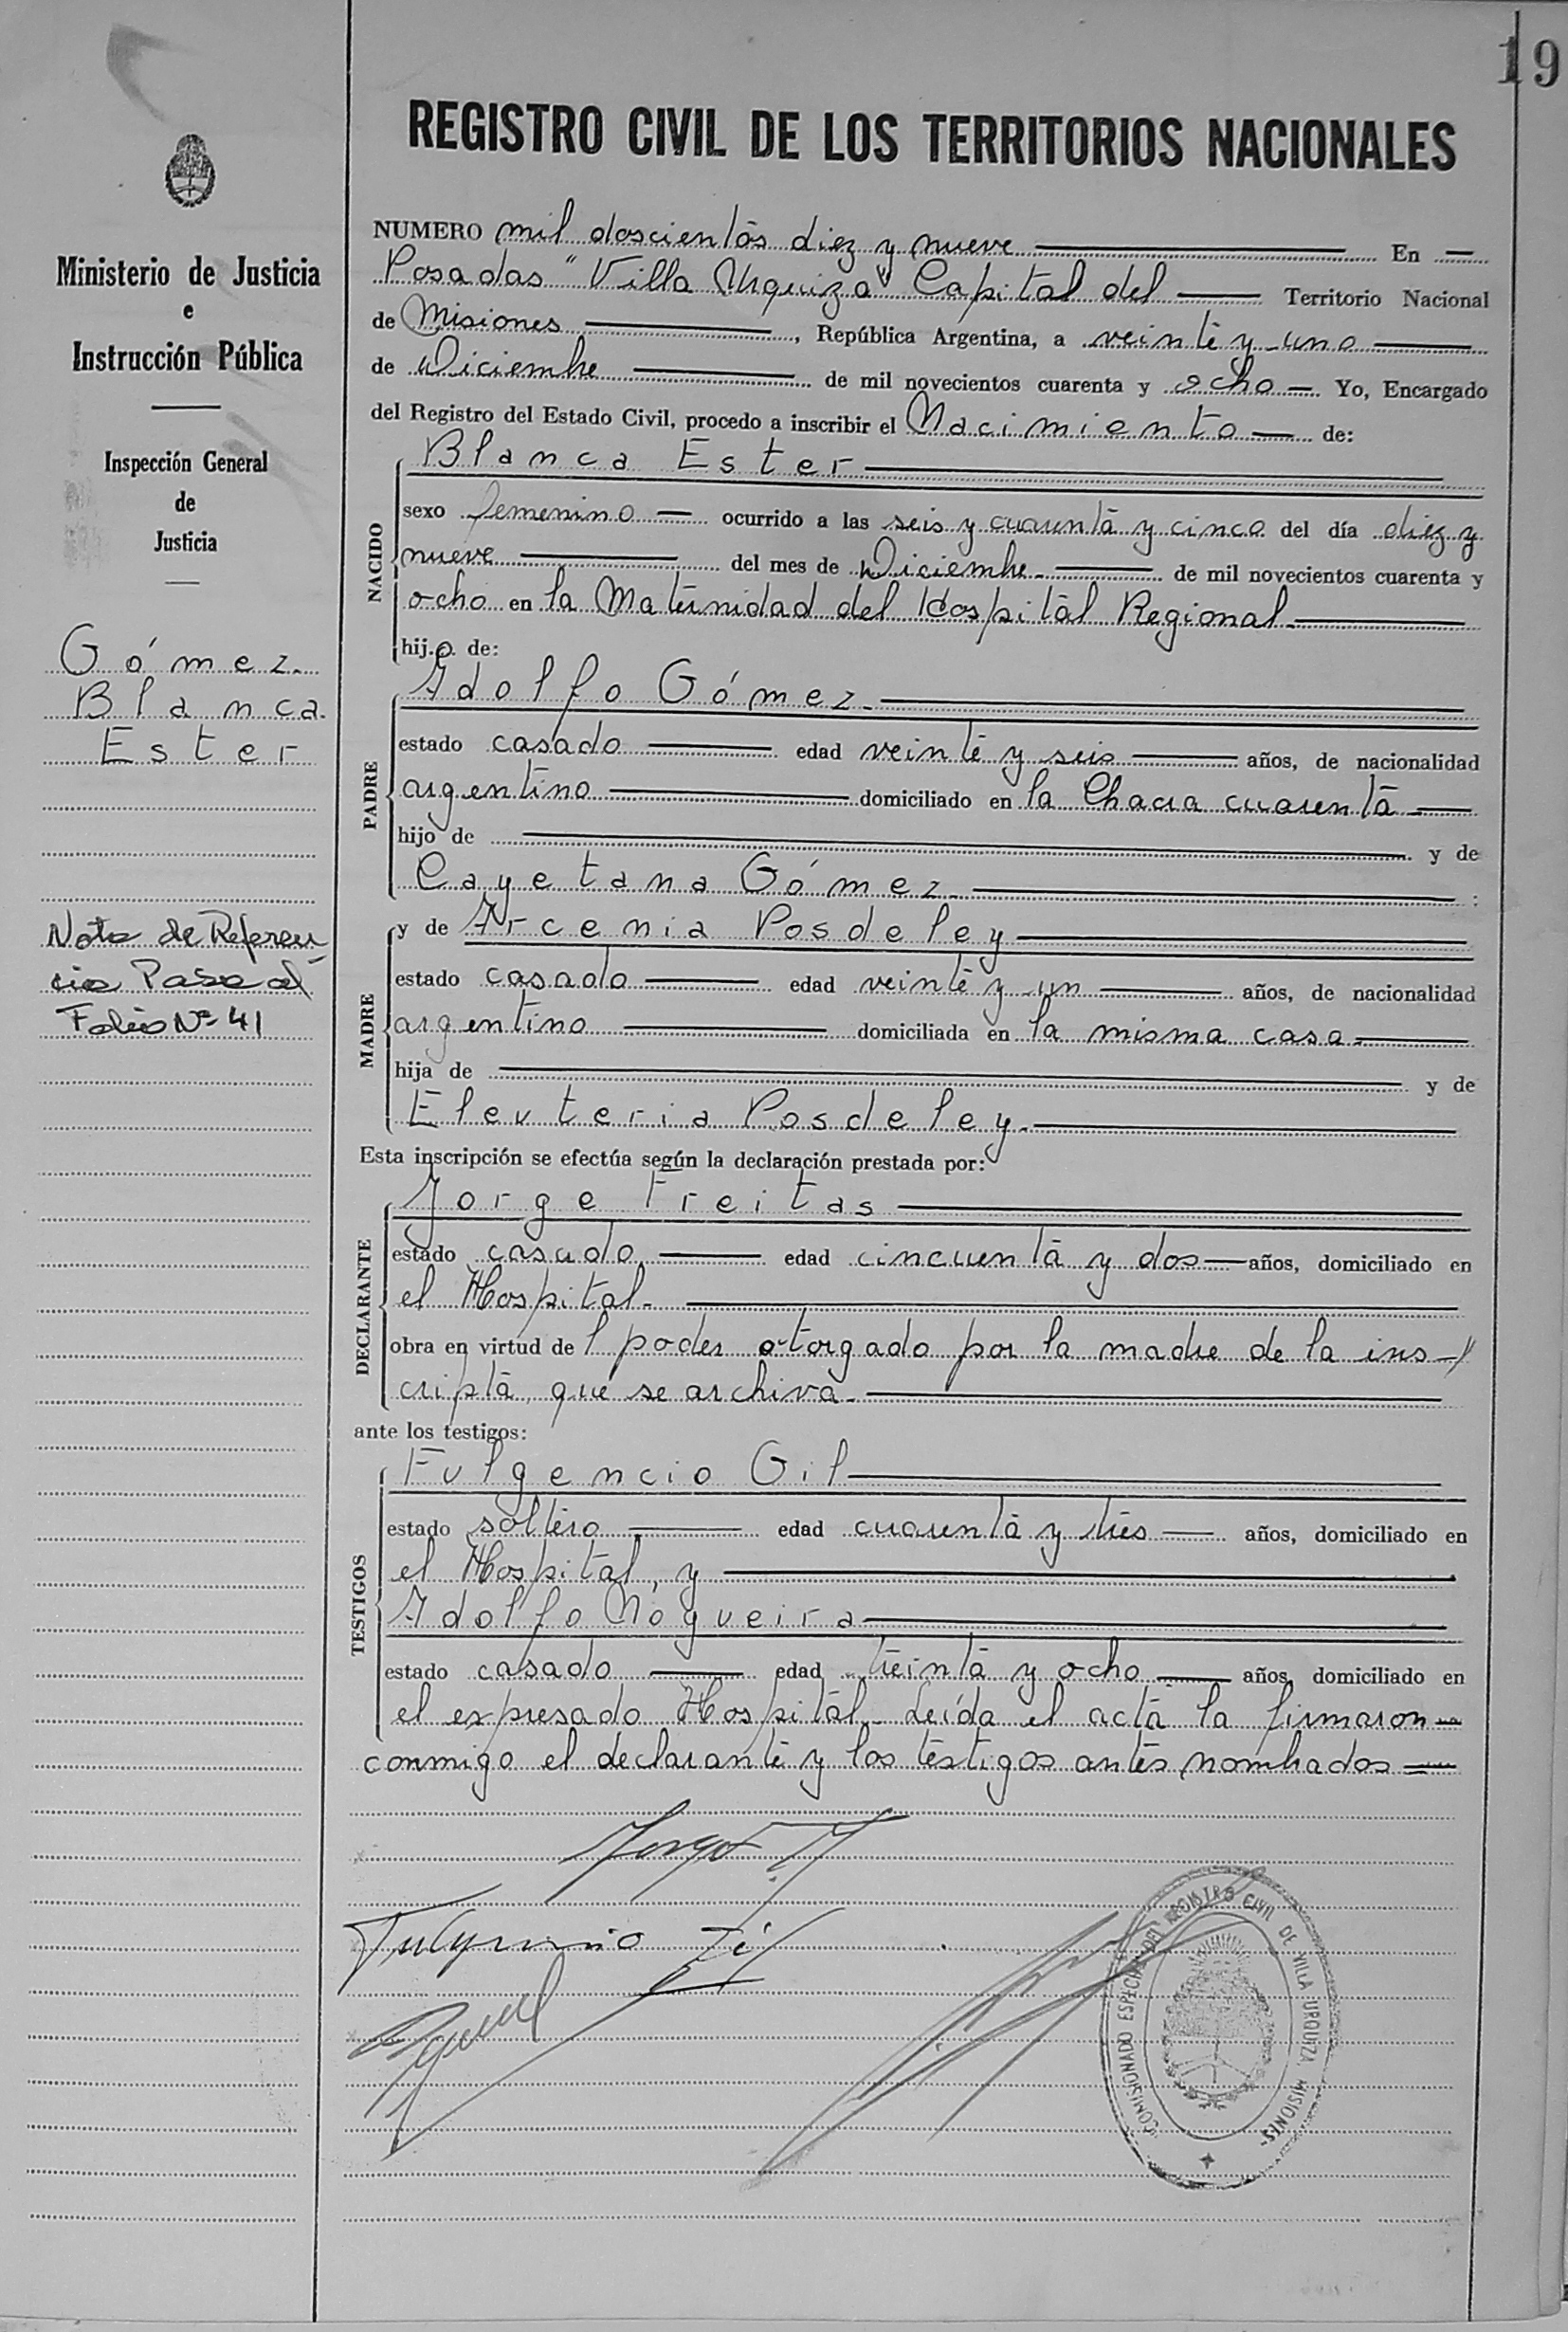 19
REGISTRO CIVIL DE LOS TERRITORIOS NACIONALES
Ministerio de Justicia
e
Instrucción Pública
Inspección General
de
Justicia
Gómez
Blanca
Ester
Nota de Referen
cia Pasa al
Folio Nº 41
NUMERO mil doscientos diez y nueve En
Posadas "Villa Urquiza" Capital del Territorio Nacional
de Misiones, República Argentina, a veinte y uno
de Diciembre de mil novecientos cuarenta y ocho Yo, Encargado
del Registro del Estado Civil, procedo a inscribir el Nacimiento de:
NACIDO
Blanca Ester
sexo femenino ocurrido a las seis y cuarenta y cinco del día diez y
nueve del mes de Diciembre de mil novecientos cuarenta y
ocho en la Maternidad del Hospital Regional
hijo de:
PADRE
Adolfo Gómez
estado casado edad veinte y seis años, de nacionalidad
argentino domiciliado en la Chacra cuarenta
hijo de y de
Cayetana Gómez :
MADRE
y de Arcenia Posdeley
estado casado edad veinte y un años, de nacionalidad
argentino domiciliada en la misma casa
hija de y de
Eleuteria Posdeley.
Esta inscripción se efectúa según la declaración prestada por:
DECLARANTE
Jorge Freitas
estado casado edad cincuenta y dos años, domiciliado en
el Hospital.
obra en virtud del poder otorgado por la madre de la ins-
cripta, que se archiva.
ante los testigos:
TESTIGOS
Fulgencio Gil
estado soltero edad cuarenta y tres años, domiciliado en
el Hospital, y
Adolfo Nogueira
estado casado edad treinta y ocho años, domiciliado en
el expresado Hospital. Leída el acta la firmaron
conmigo el declarante y los testigos antes nombrados
Jorge
Fulgencio Gil
COMISIONADO ESPECIAL DEL REGISTRO CIVIL DE VILLA URQUIZA MISIONES